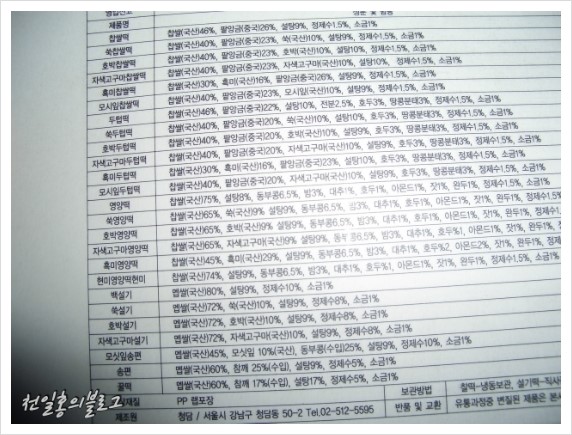 제품명
찹쌀떡 찹쌀(국산)46%, 팥앙금(중국)26%, 설탕9%, 정제수1.5%, 소금1%
쑥찹쌀떡 찹쌀(국산)40%, 팥앙금(중국)23%, 쑥(국산)10%, 설탕9%, 정제수1.5%, 소금1%
호박찹쌀떡 찹쌀(국산)40%, 팥앙금(중국)23%, 호박(국산)10%, 설탕10%, 정제수1.5%, 소금1%
자색고구마찹쌀떡 찹쌀(국산)40%, 팥앙금(중국)23%, 자색고구마(국산)10%, 설탕9%, 정제수1.5%, 소금1%
흑미찹쌀떡 찹쌀(국산)30%, 흑미(국산)16%, 팥앙금(중국)26%, 설탕9%, 정제수1.5%, 소금1%
모시잎찹쌀떡 찹쌀(국산)40%, 팥앙금(중국)23%, 모시잎(국산)10%, 설탕9%, 정제수1.5%, 소금1%
두텁떡 찹쌀(국산)46%, 팥앙금(중국)22%, 설탕10%, 전분2.5%, 호두3%, 땅콩분태3%, 정제수1.5%, 소금1%
쑥두텁떡 찹쌀(국산)40%, 팥앙금(중국)20%, 쑥(국산)10%, 설탕9%, 호두3%, 땅콩분태3%, 정제수1.5%, 소금1%
호박두텁떡 찹쌀(국산)40%, 팥앙금(중국)20%, 호박(국산)10%, 설탕9%, 호두3%, 땅콩분태3%, 정제수1.5%, 소금1%
자색고구마두텁떡 찹쌀(국산)40%, 팥앙금(중국)20%, 자색고구마(국산)10%, 설탕9%, 호두3%, 땅콩분태3%, 정제수1.5%, 소금1%
흑미두텁떡 찹쌀(국산)30%, 흑미(국산)16%, 팥앙금(중국)23%, 설탕10%, 호두3%, 땅콩분태3%, 정제수1.5%, 소금1%
모시잎두텁떡 찹쌀(국산)40%, 팥앙금(중국)20%,
영양떡 찹쌀(국산)75%, 설탕8%, 동부콩6.5%, 밤3%, 대추1%, 호두1%, 아몬드1%, 잣1%, 완두1%, 정제수1.5%, 소금1%
쑥영양떡 찹쌀(국산)65%, 쑥(국산)9%, 설탕9%, 동부콩6.5%, 밤3%, 대추1%,
호박영양떡 찹쌀(국산)65%, 호박(국산)9%, 설탕9%, 동부콩6.5%, 밤3%, 대추1%,
자색고구마영양떡 찹쌀(국산)65%, 자색고구마(국산)9%, 설탕9%, 동부콩6.5%, 밤3%, 대추1%,
흑미영양떡 찹쌀(국산)45%, 흑미(국산)29%, 설탕9%, 동부콩6.5%, 밤3%, 대추1%,
현미영양떡현미 찹쌀(국산)74%, 설탕9%, 동부콩6.5%, 밤3%, 대추1%,
백설기 멥쌀(국산)80%, 설탕9%, 정제수10%, 소금1%
쑥설기 멥쌀(국산)72%, 쑥(국산)10%, 설탕9%, 정제수8%, 소금1%
호박설기 멥쌀(국산)72%, 호박(국산)10%, 설탕9%, 정제수8%, 소금1%
자색고구마설기 멥쌀(국산)72%, 자색고구마(국산)10%, 설탕9%, 정제수8%, 소금1%
모싯잎송편 멥쌀(국산)45%, 모싯잎 10%(국산), 동부콩(수입)25%, 설탕9%, 정제수10%, 소금1%
송편 멥쌀(국산)60%, 참깨 25%(수입), 설탕9%, 정제수5%, 소금1%
꿀떡 멥쌀(국산)60%, 참깨 17%(수입), 설탕17%, 정제수5%, 소금1%
재질 PP 랩포장 보관방법 찰떡-냉동보관, 설기떡-직사
제조원 청담 / 서울시 강남구 청담동 50-2 Tel.02-512-5595 반품 및 교환 유통과정중 변질된 제품은 본사
천일홍의블로그